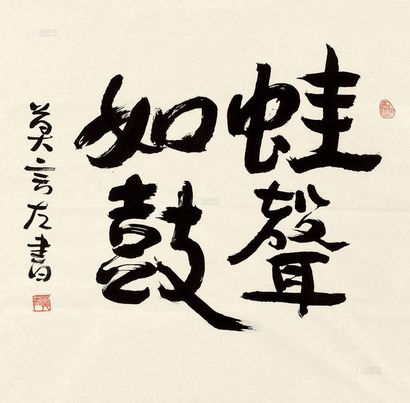 蛙聲
如鼓
莫言左書